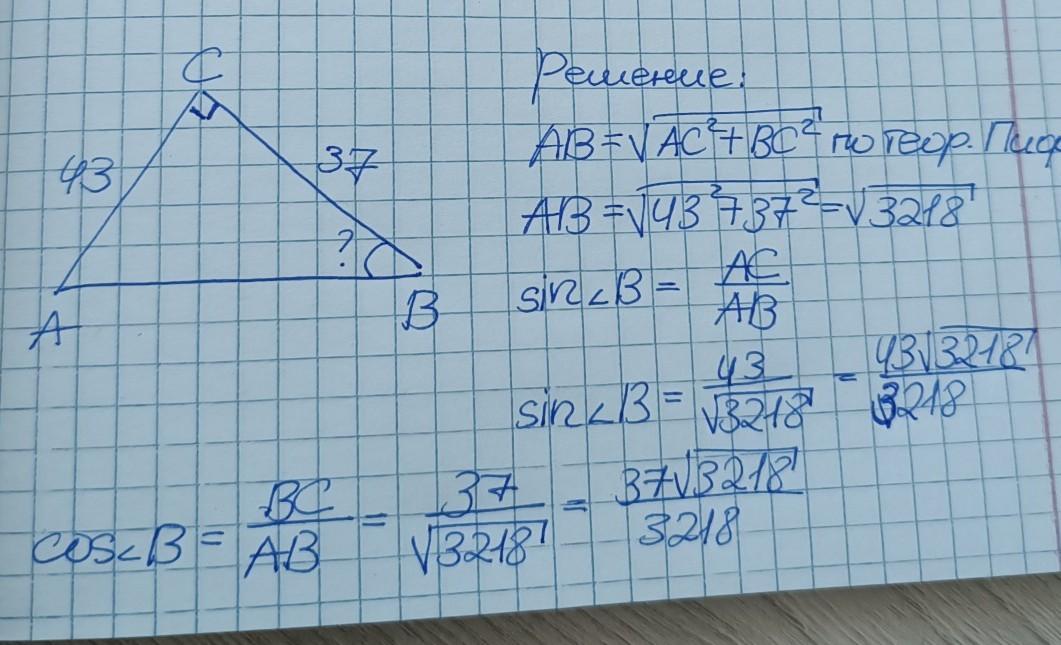 C
43
37
?
A
B
Решение:
AB = √AC²+BC² по теор. Пиф
AB = √43²+37² = √3218
sin∠B = AC/AB
sin∠B = 43/√3218 = 43√3218/3218
cos∠B = BC/AB = 37/√3218 = 37√3218/3218